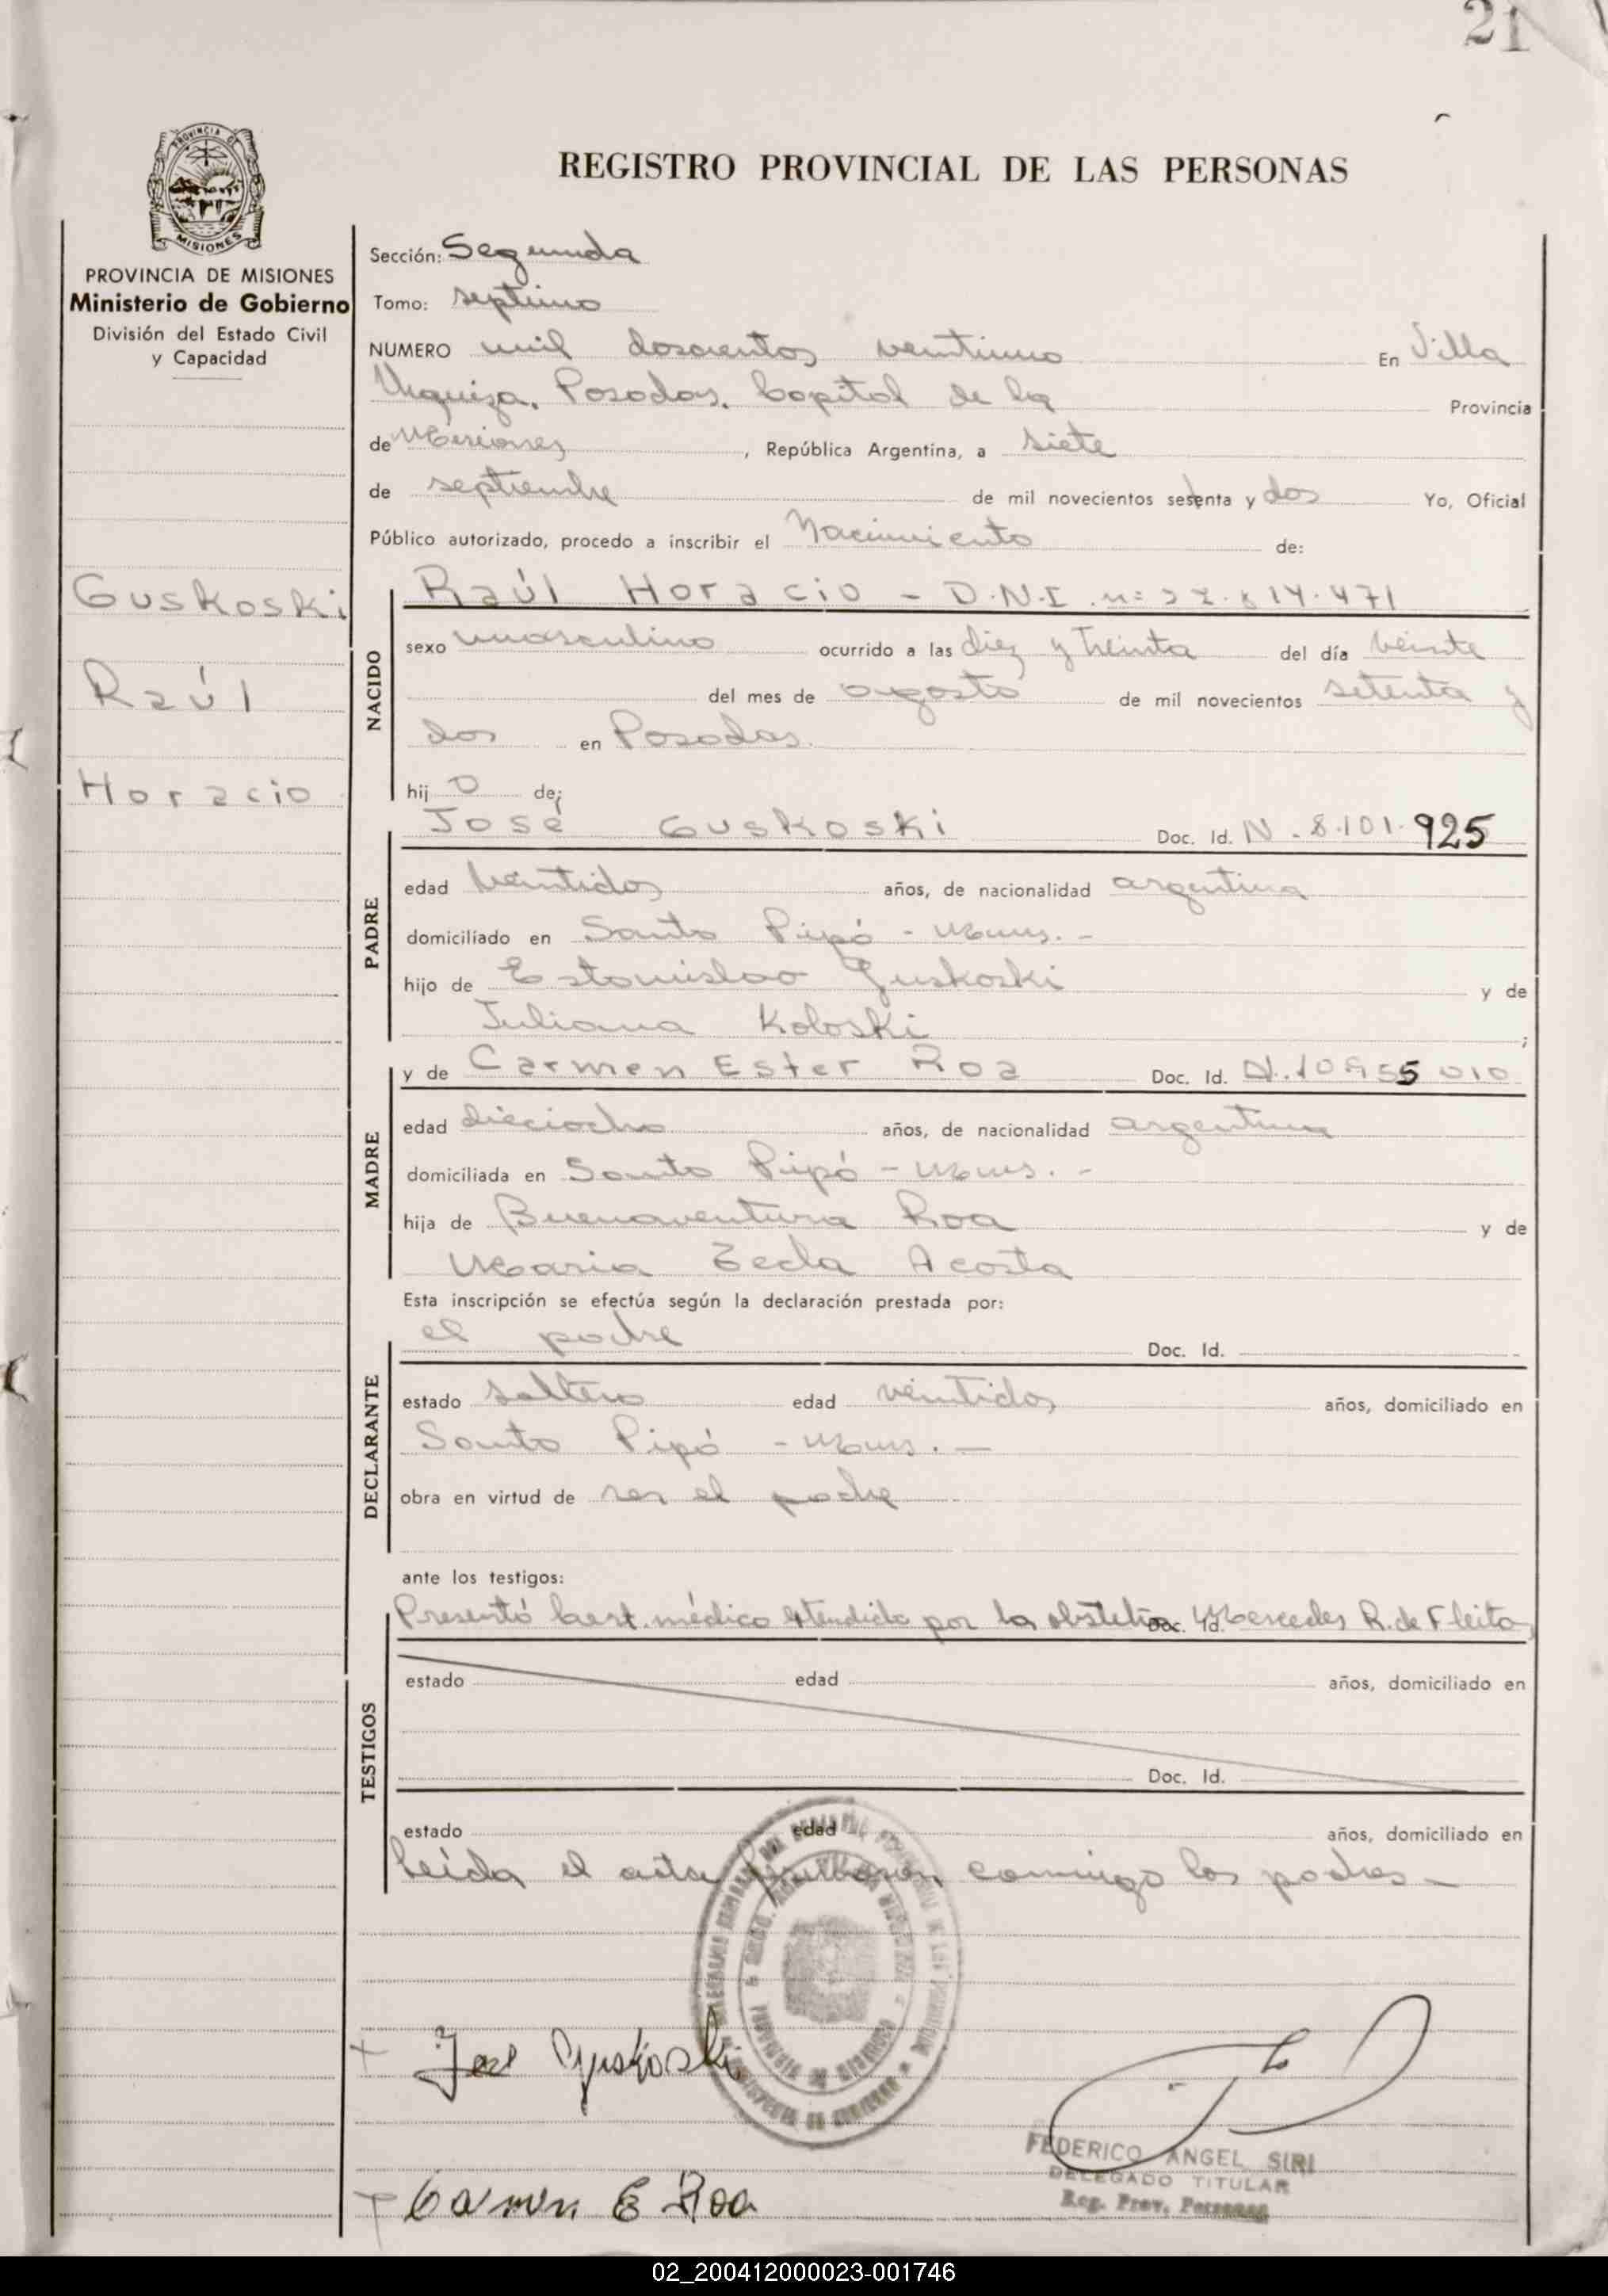 21
REGISTRO PROVINCIAL DE LAS PERSONAS
PROVINCIA DE MISIONES
Ministerio de Gobierno
División del Estado Civil
y Capacidad
Sección: Segunda
Tomo: septimo
NUMERO mil doscientos veintiuno En Villa
Urquiza, Posadas, Capital de la Provincia
de Misiones, República Argentina, a siete
de septiembre de mil novecientos setenta y dos Yo, Oficial
Público autorizado, procedo a inscribir el Nacimiento de:
Guskoski
Raúl
Horacio
NACIDO
Raúl Horacio - D.N.I. nº
sexo masculino ocurrido a las diez y treinta del día veinte
del mes de agosto de mil novecientos setenta y
dos en Posadas.
hijo de;
PADRE
José Guskoski Doc. Id. N. 8.101.925
edad veintidos años, de nacionalidad argentina
domiciliado en Santo Pipó - Mnes. -
hijo de Estanislao Guskoski y de
Juliana Koloski ;
MADRE
y de Carmen Ester Roa Doc. Id.
edad dieciocho años, de nacionalidad argentina
domiciliada en Santo Pipó - Mnes. -
hija de Buenaventura Roa y de
Maria Tecla Acosta
Esta inscripción se efectúa según la declaración prestada por:
DECLARANTE
el padre Doc. Id.
estado soltero edad veintidos años, domiciliado en
Santo Pipó - Mnes. -
obra en virtud de ser el padre
ante los testigos:
TESTIGOS
Presentó Cert. médico extendido por la obstetra Mercedes R. de Fleitas
estado edad años, domiciliado en
Doc. Id.
estado edad años, domiciliado en
Leída el acta firmaron conmigo los padres -
José Guskoski
FEDERICO ANGEL SIRI
DELEGADO TITULAR
Reg. Prov. Personas
Carmen E Roa
02_200412000023-001746